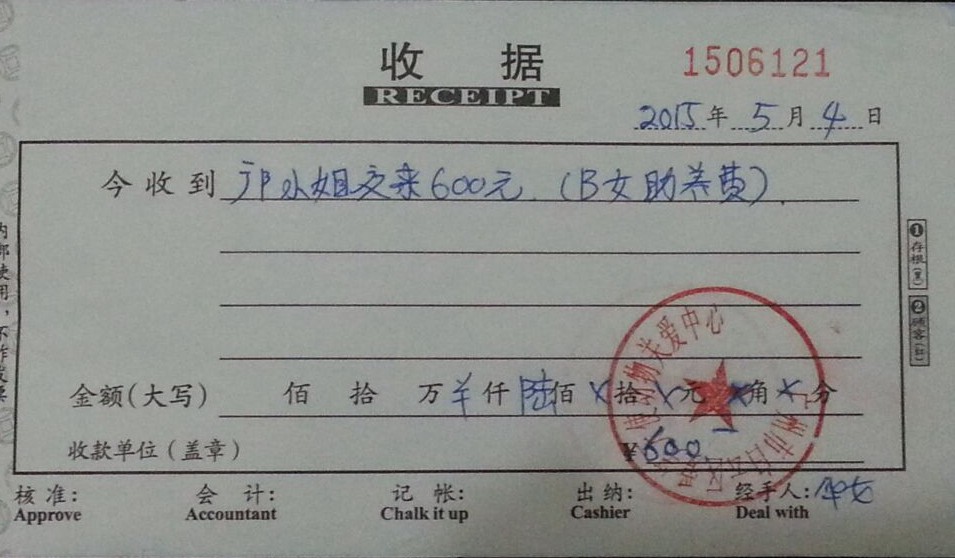 收 据
1506121
RECEIPT
2015年5月4日
今收到 邝小姐交来600元.(B女助养费).
❶存根(黑)
❷顾客(红)
内部使用,不作发票
金额(大写) 佰 拾 万 ¥仟 陆佰 ×拾 ×元 ×角 ×分
收款单位(盖章) ¥600
物关爱中心
广州市白云区
核 准: 会 计: 记 帐: 出 纳: 经手人:
Approve Accountant Chalk it up Cashier Deal with